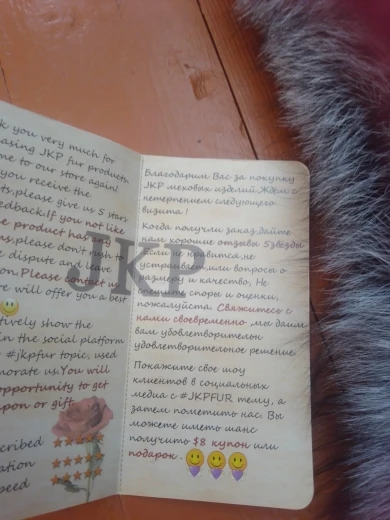 k you very much for
asing JKP fur products,
me to our store again!
you receive the
ts,please give us 5 stars
edback.If you not like
e product has any
ns,please don't rush to
e dispute and leave
on.Please contact us
re will offer you a best
tively show the
in the social platform
#jkpfur topic, used
morate us.You will
opportunity to get
upon or gift
cribed
ation
peed
JKP
Благодарим Вас за покупку
JKP меховых изделий.Ждем с
нетерпением следующего
визита!
Когда получили заказ,дайте
нам хорошие отзывы 5звёзды
Если не нравится,не
устраивает или вопросы о
размеру и качество, Не
спешить споры и оценки,
пожалуйста. Свяжитесь с
нами своевременно ,мы даим
вам удовлетворительн
удовлетворительное решение.
Покажите свое шоу
клиентов в социальных
медиа с #JKPFUR тему, а
затем пометить нас. Вы
можете иметь шанс
получить $8 купон или
подарок .